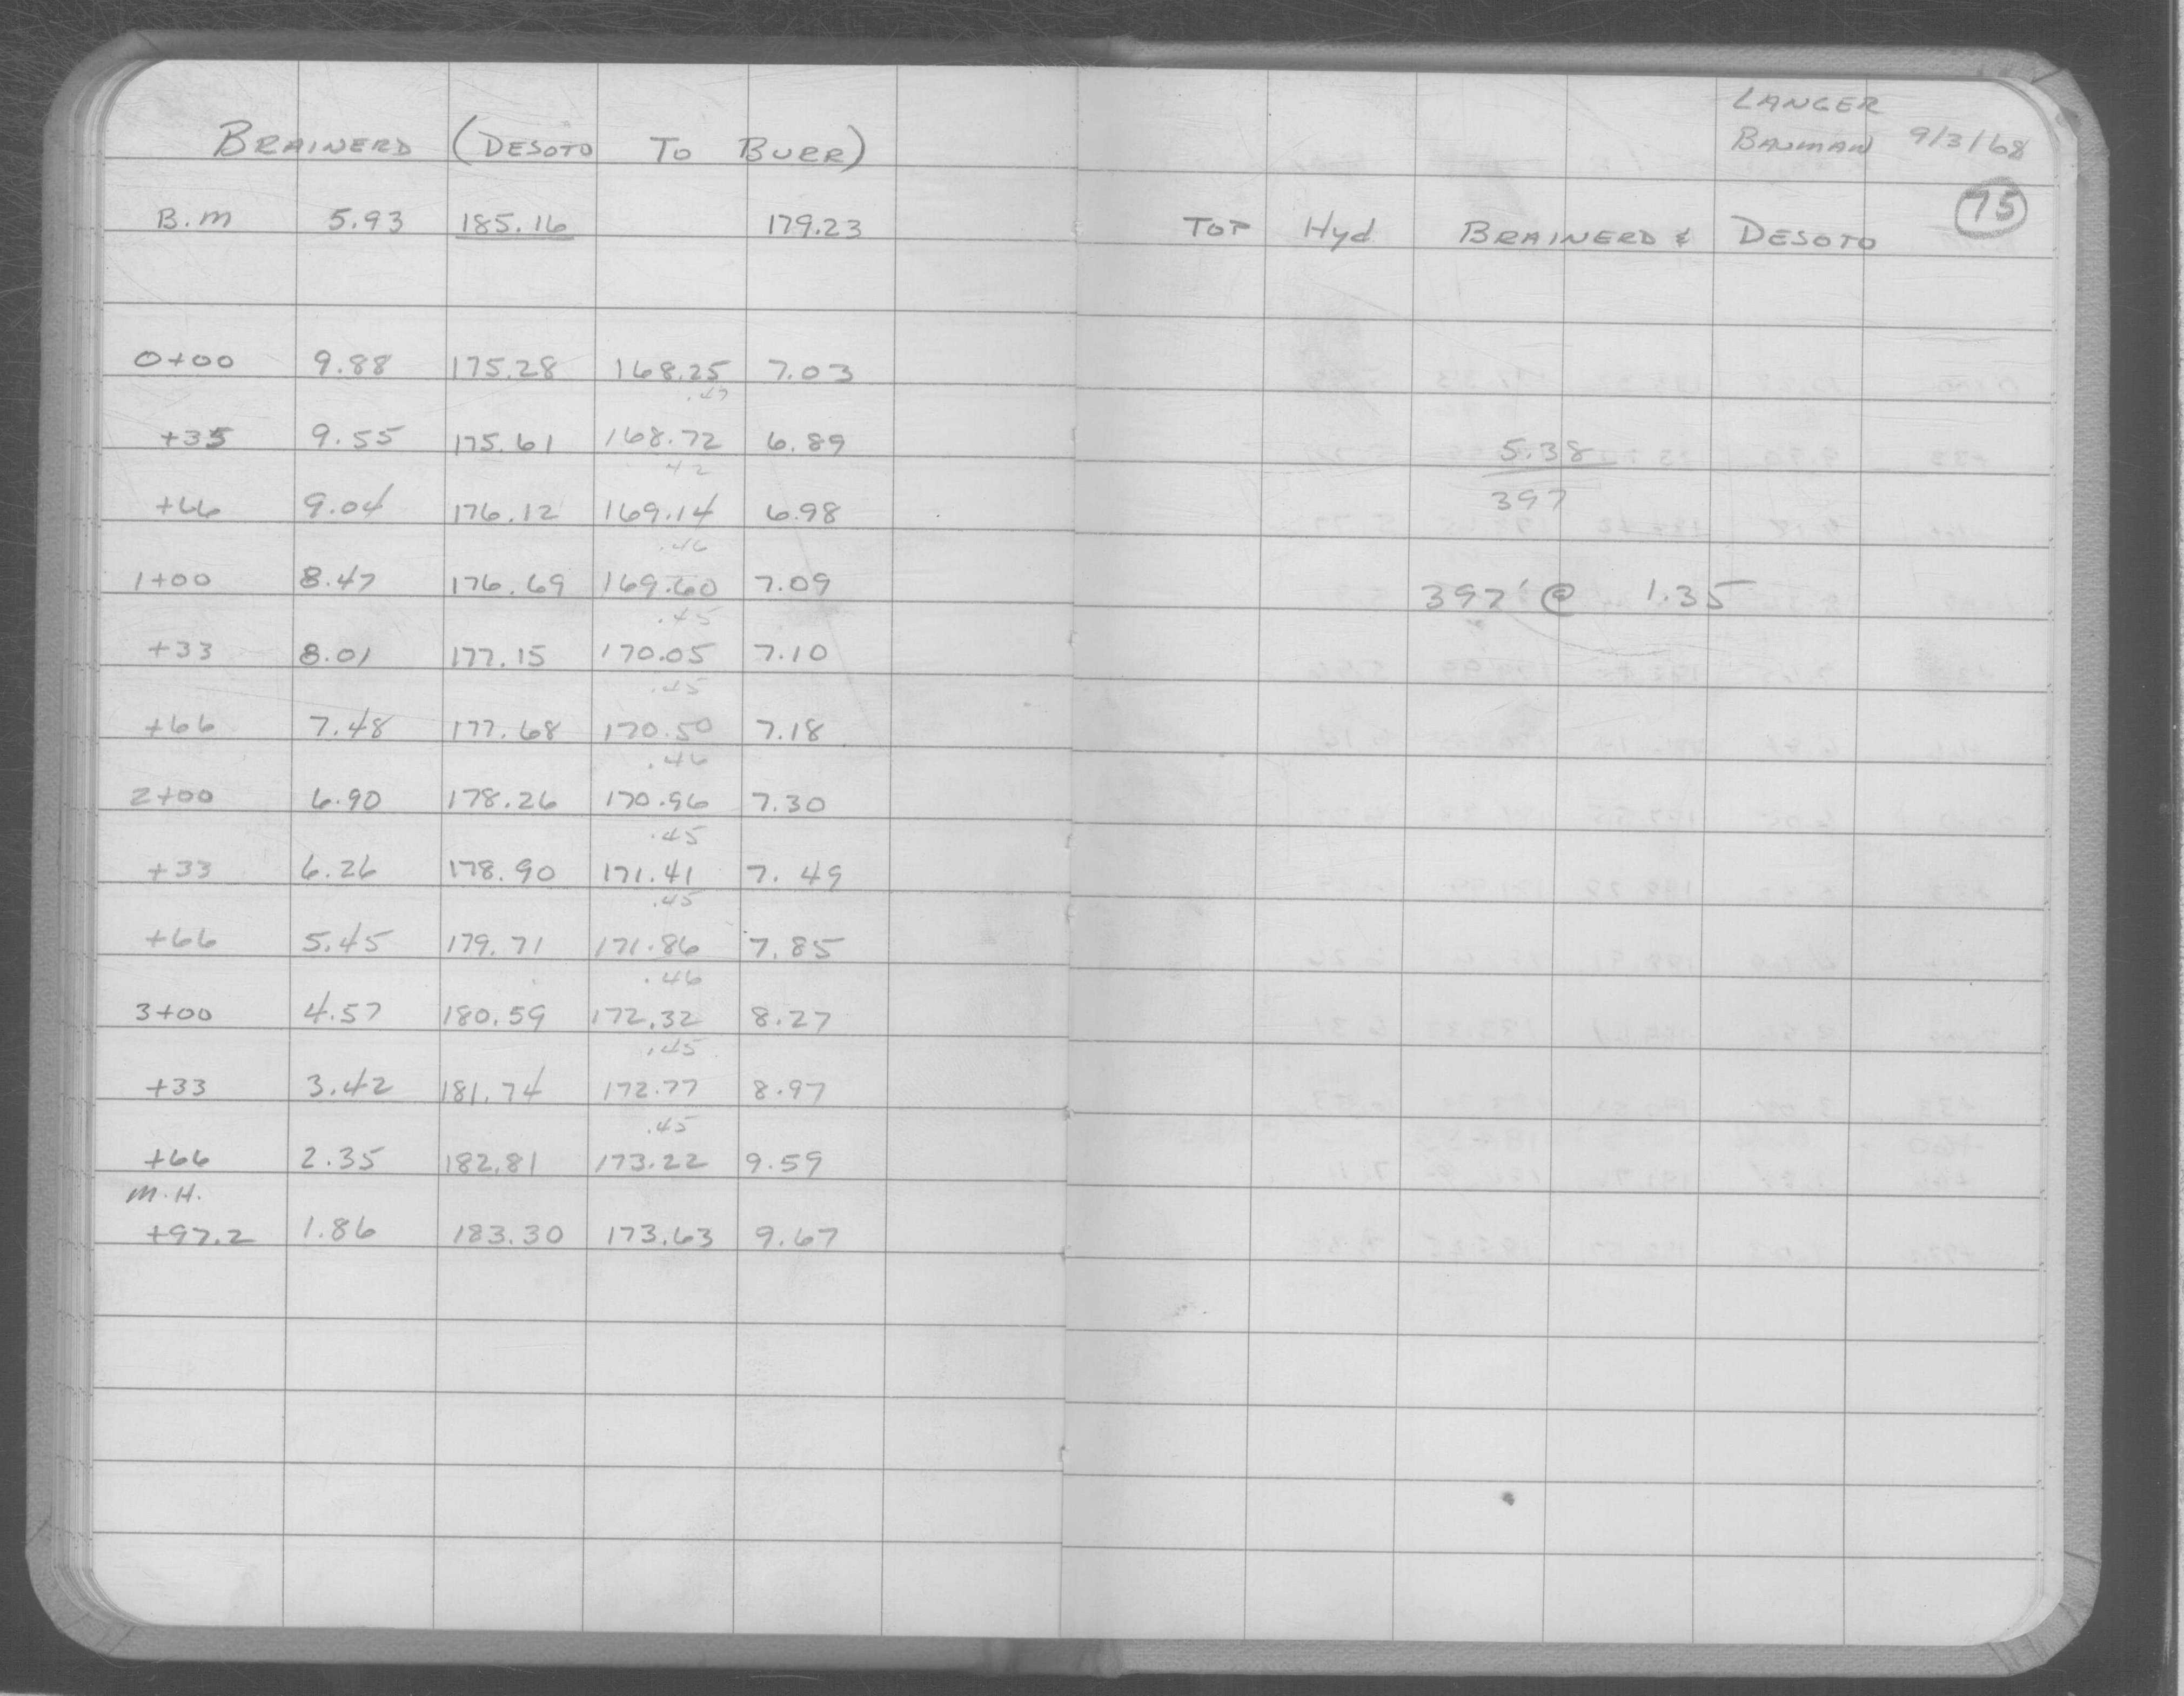 BRAINERD (DESOTO TO BURR)
B.M 5.93 185.16 179.23
0+00 9.88 175.28 168.25 7.03
.47
+35 9.55 175.61 168.72 6.89
42
+66 9.04 176.12 169.14 6.98
.46
1+00 8.47 176.69 169.60 7.09
.45
+33 8.01 177.15 170.05 7.10
.45
+66 7.48 177.68 170.50 7.18
.46
2+00 6.90 178.26 170.96 7.30
.45
+33 6.26 178.90 171.41 7.49
.45
+66 5.45 179.71 171.86 7.85
.46
3+00 4.57 180.59 172.32 8.27
.45
+33 3.42 181.74 172.77 8.97
.45
+66 2.35 182.81 173.22 9.59
M.H.
+97.2 1.86 183.30 173.63 9.67
LANGER
BAUMAN 9/3/68
75
TOP Hyd BRAINERD & DESOTO
5.38
397
397' @ 1.35